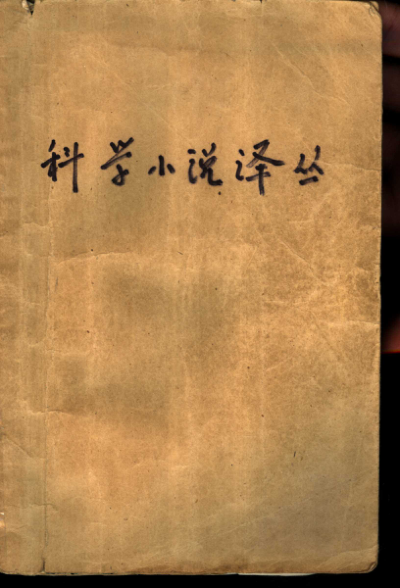 科学小说译丛